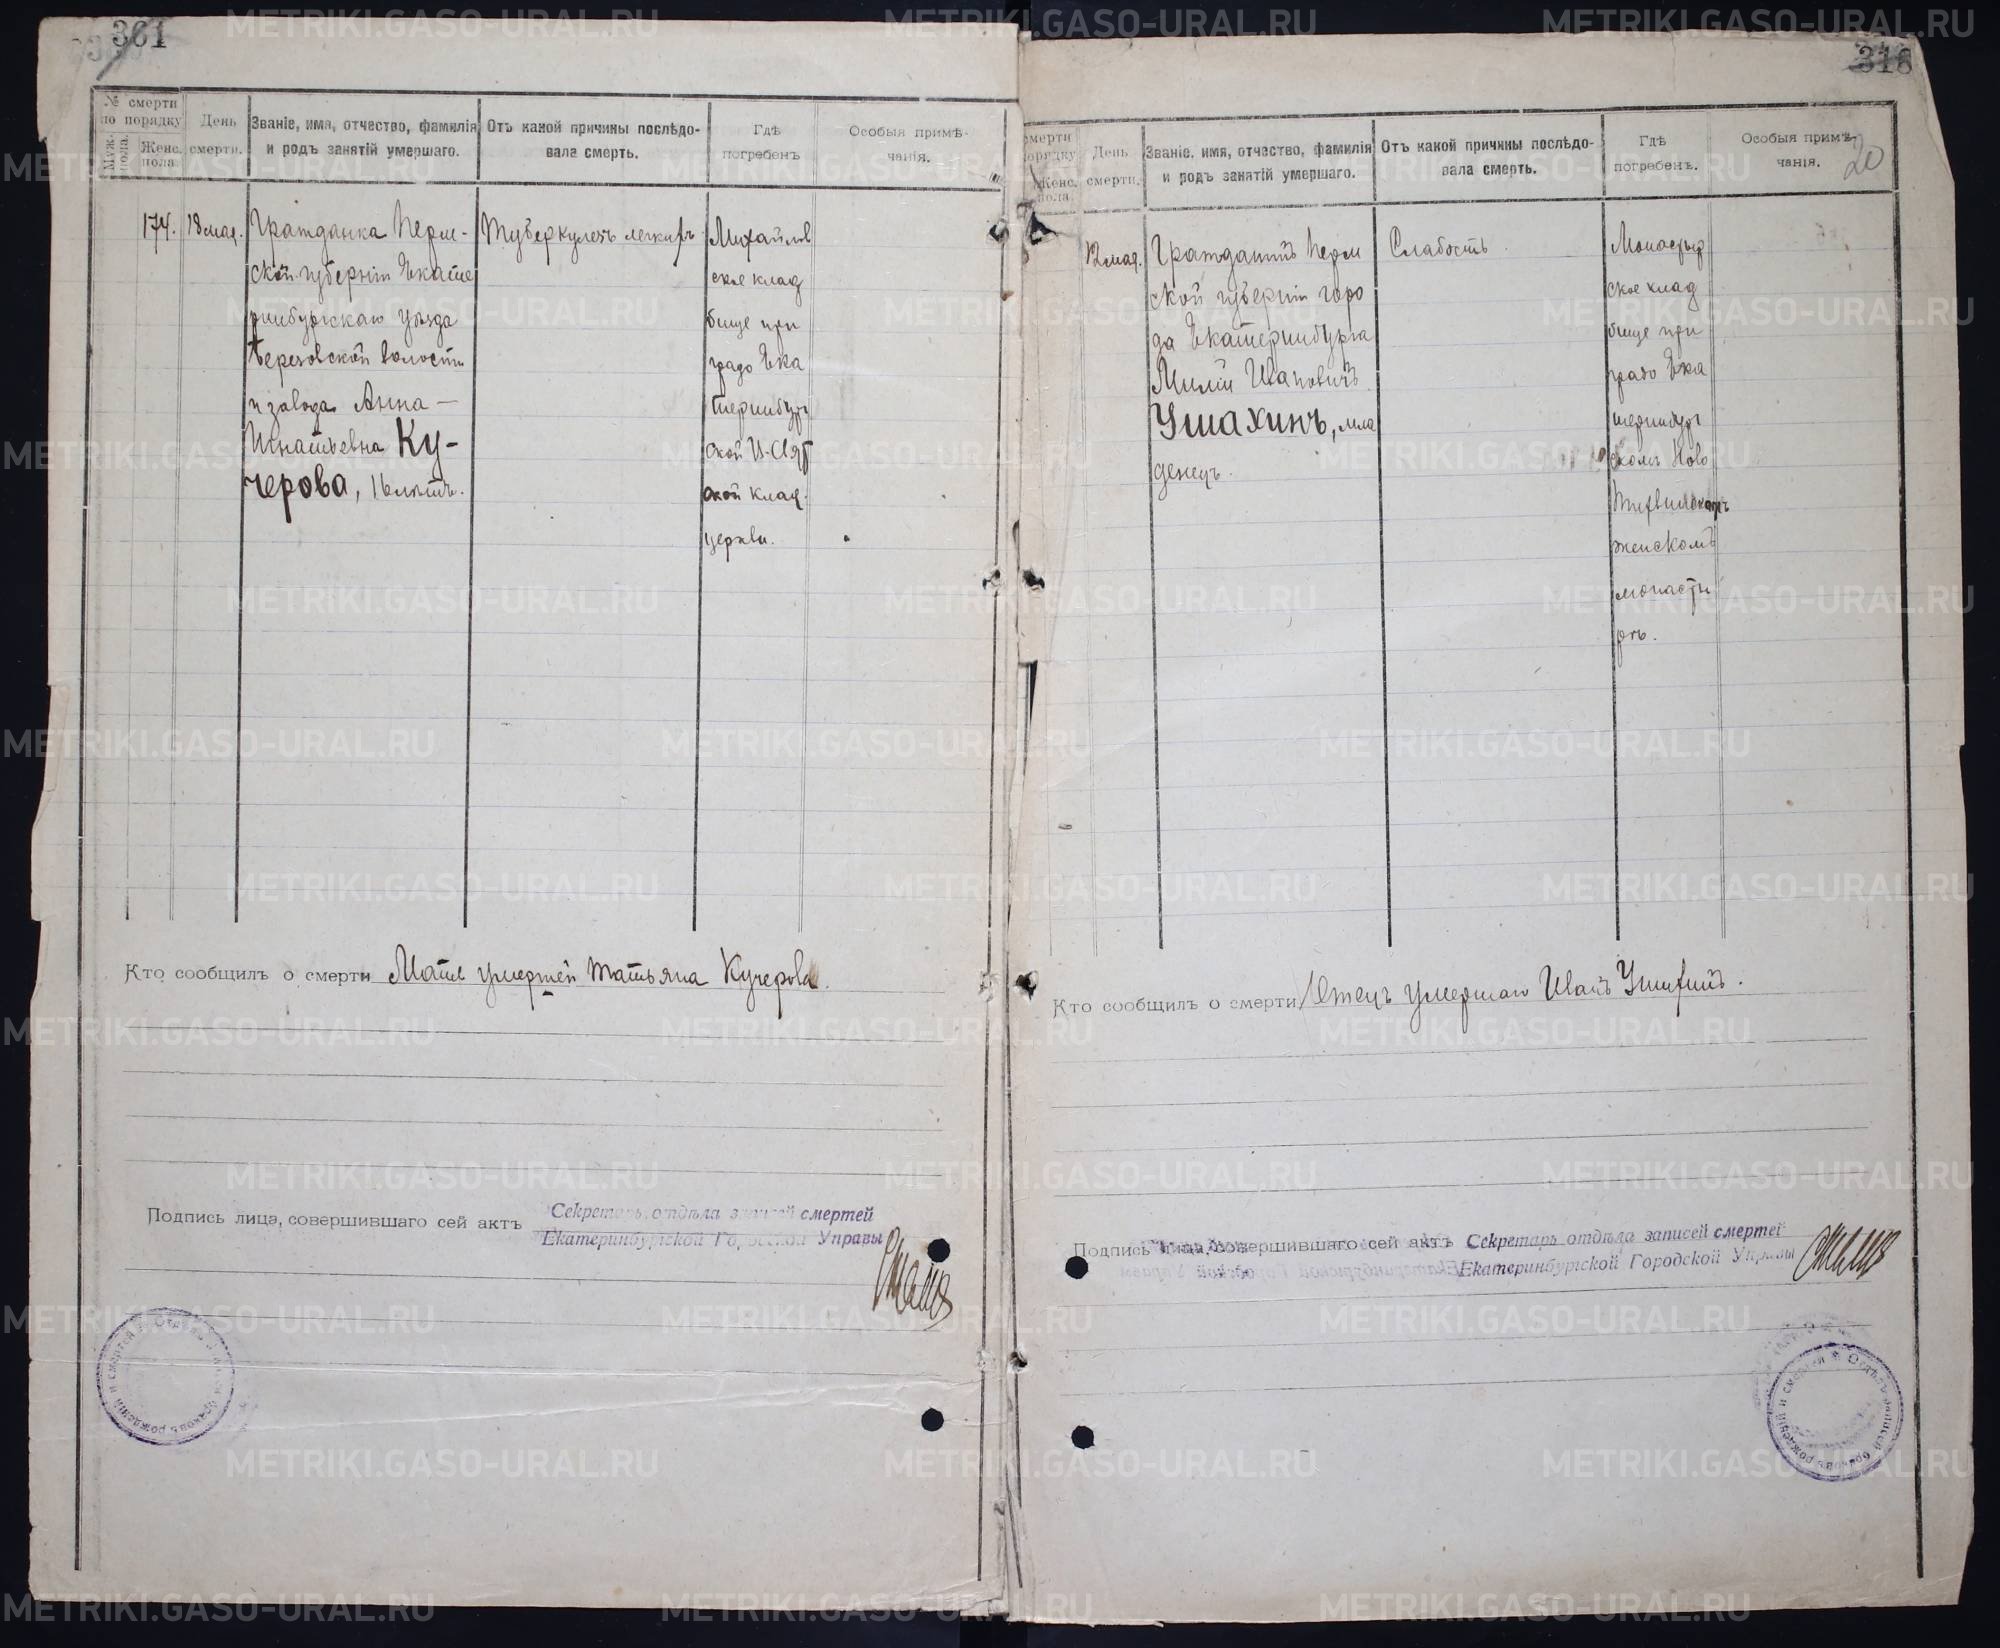 361
№ смерти
по порядку
Муж. пола.
Женс. пола.
День
смерти.
Званіе, имя, отчество, фамилія
и родъ занятій умершаго.
Отъ какой причины послѣдо-
вала смерть.
Гдѣ
погребенъ
Особыя примѣ-
чанія.
174.
18 мая.
Гражданка Перм-
ской губерніи Екате
ринбургскаго уѣзда
Березовской волости
и завода Анна —
Игнатьевна Ку-
черова, 16 лѣтъ.
Туберкулезъ легкихъ
Михайлов
ское клад
бище при
градо Ека
теринбург
ской
ской клад.
церкви.
Кто сообщилъ о смерти Мать умершей Татьяна Кучерова.
Подпись лица, совершившаго сей актъ
Секретарь отдѣла записей смертей
Екатеринбургской Городской Управы
316
20
смерти
порядку
Женс. пола.
День
смерти.
Званіе, имя, отчество, фамилія
и родъ занятій умершаго.
Отъ какой причины послѣдо-
вала смерть.
Гдѣ
погребенъ.
Особыя примѣ-
чанія.
12 мая.
Гражданинъ Перм
ской губерніи горо
да Екатеринбурга
Милій Ивановичъ
Ушахинъ, мла
денецъ.
Слабость.
Монастыр
ское клад
бище при
градо Ека
теринбург
скомъ Ново
Тихвинскомъ
женскомъ
монасты
рѣ.
Кто сообщилъ о смерти Отецъ умершаго Иванъ Ушахинъ.
Подпись лица, совершившаго сей актъ Секретарь отдѣла записей смертей
Екатеринбургской Городской Управы
METRIKI.GASO-URAL.RU